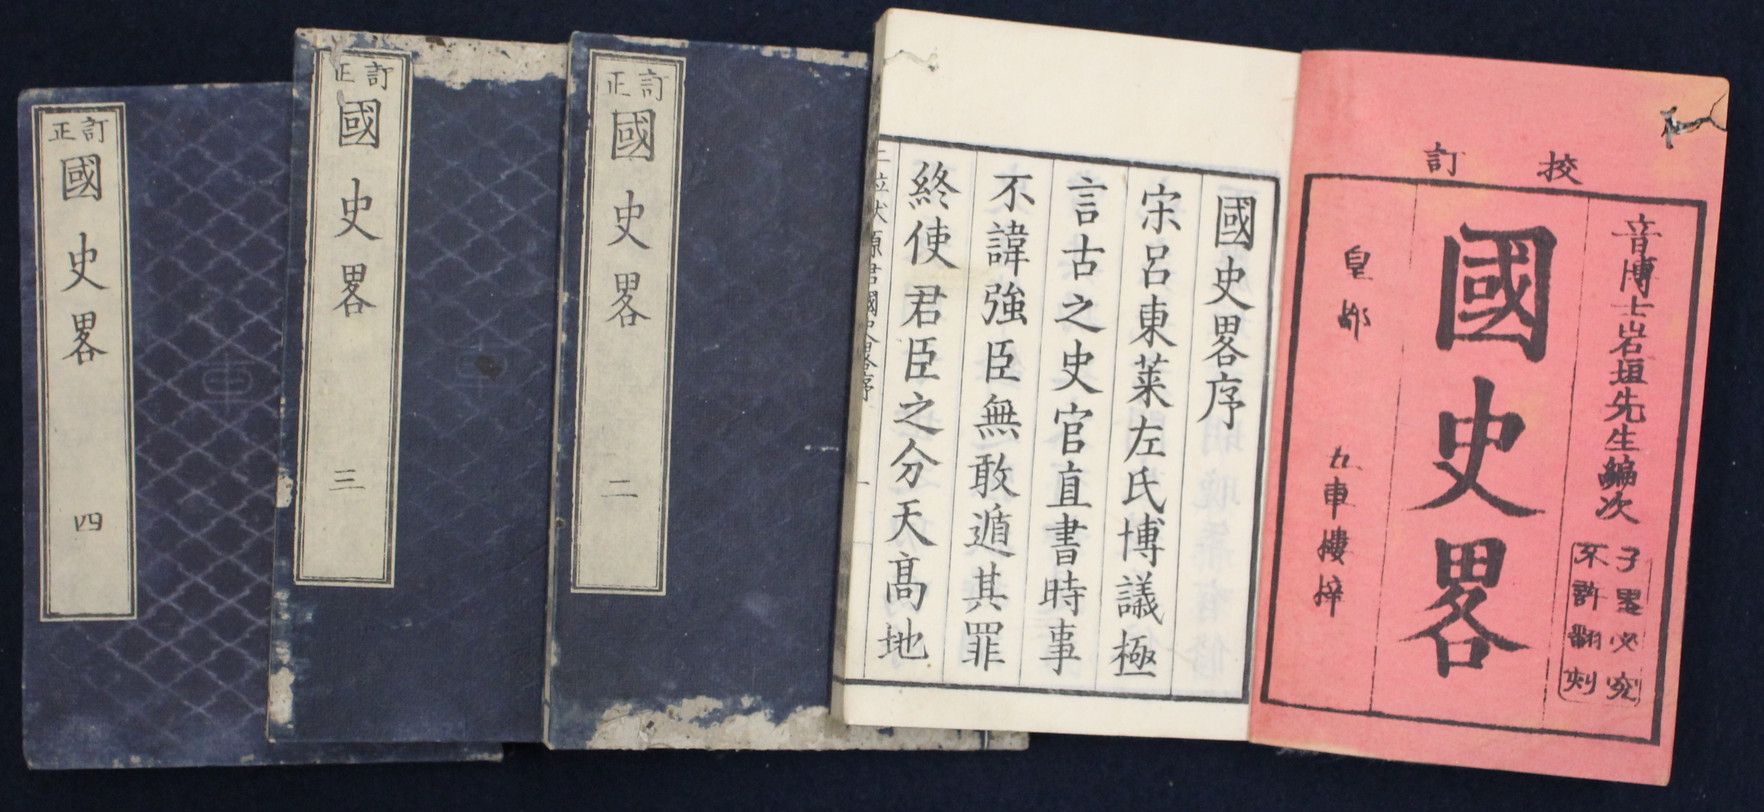 挍訂
音博士岩垣先生編次
千里必究
不許翻刻
國史畧
皇都 五車樓梓
國史畧序
宋呂東萊左氏博議極
言古之史官直書時事
不諱強臣無敢遁其罪
終使君臣之分天高地
原君國史畧序
訂正
國史畧 二
訂正
國史畧 三
訂正
國史畧 四